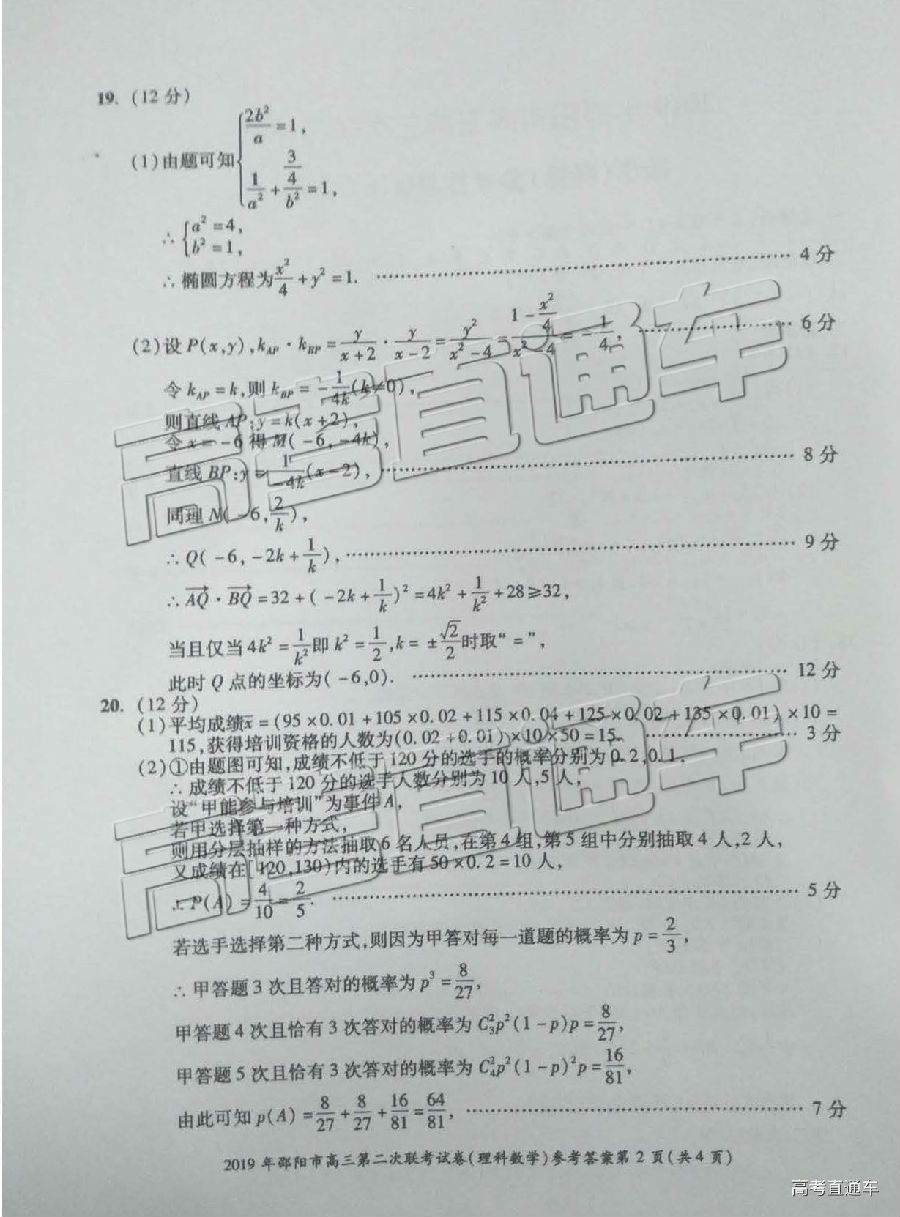 19. (12 分)
(1)由题可知{2b²/a=1,
1/a²+(3/4)/b²=1,
∴{a²=4,
b²=1,
∴椭圆方程为x²/4+y²=1. ………… 4 分
(2)设 P(x,y),k_AP·k_BP=y/(x+2)·y/(x-2)=y²/(x²-4)=(1-x²/4)/(x²-4)=-1/4, ………… 6 分
令 k_AP=k,则 k_BP=-1/(4k)(k≠0),
则直线 AP:y=k(x+2),
令 x=-6 得 M(-6,-4k),
直线 BP:y=1/(-4k)(x-2), ………… 8 分
同理 N(-6,2/k),
∴Q(-6,-2k+1/k), ………… 9 分
∴AQ→·BQ→=32+(-2k+1/k)²=4k²+1/k²+28≥32,
当且仅当 4k²=1/k²即 k²=1/2,k=±√2/2时取“=”,
此时 Q 点的坐标为(-6,0). ………… 12 分
20. (12 分)
(1)平均成绩x̄=(95×0.01+105×0.02+115×0.04+125×0.02+135×0.01)×10=
115,获得培训资格的人数为(0.02+0.01)×10×50=15. ………… 3 分
(2)①由题图可知,成绩不低于120分的选手的概率分别为0.2,0.1,
∴成绩不低于120分的选手人数分别为10人,5人,
设“甲能参与培训”为事件A,
若甲选择第一种方式,
则用分层抽样的方法抽取6名人员,在第4组,第5组中分别抽取4人,2人,
又成绩在[120,130)内的选手有50×0.2=10人,
∴P(A)=4/10=2/5. ………… 5 分
若选手选择第二种方式,则因为甲答对每一道题的概率为 p=2/3,
∴甲答题3次且答对的概率为 p³=8/27,
甲答题4次且恰有3次答对的概率为 C₃²p²(1-p)p=8/27,
甲答题5次且恰有3次答对的概率为 C₄²p²(1-p)²p=16/81,
由此可知 p(A)=8/27+8/27+16/81=64/81, ………… 7 分
2019年邵阳市高三第二次联考试卷(理科数学)参考答案第2页(共4页)
高考直通车
高考直通车
高考直通车